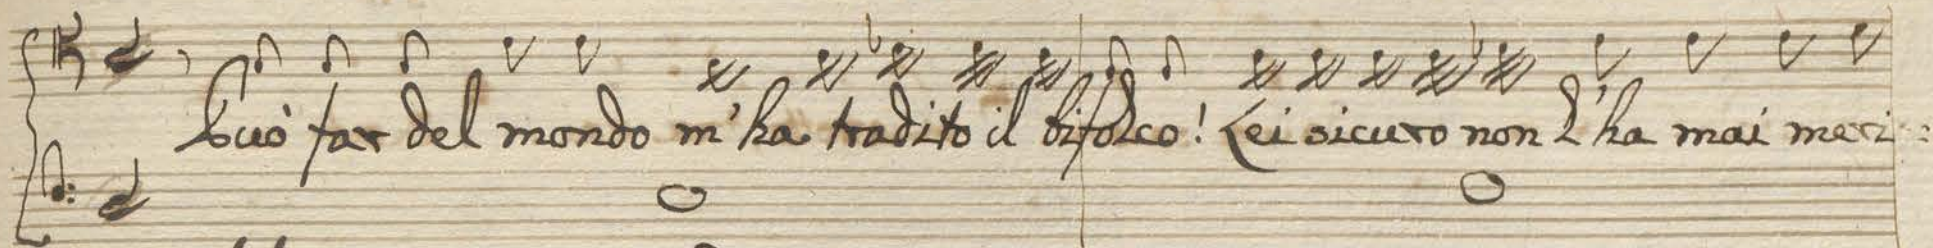 Può far del mondo m'ha tradito il bifolco! Lei sicuro non l'ha mai meri: